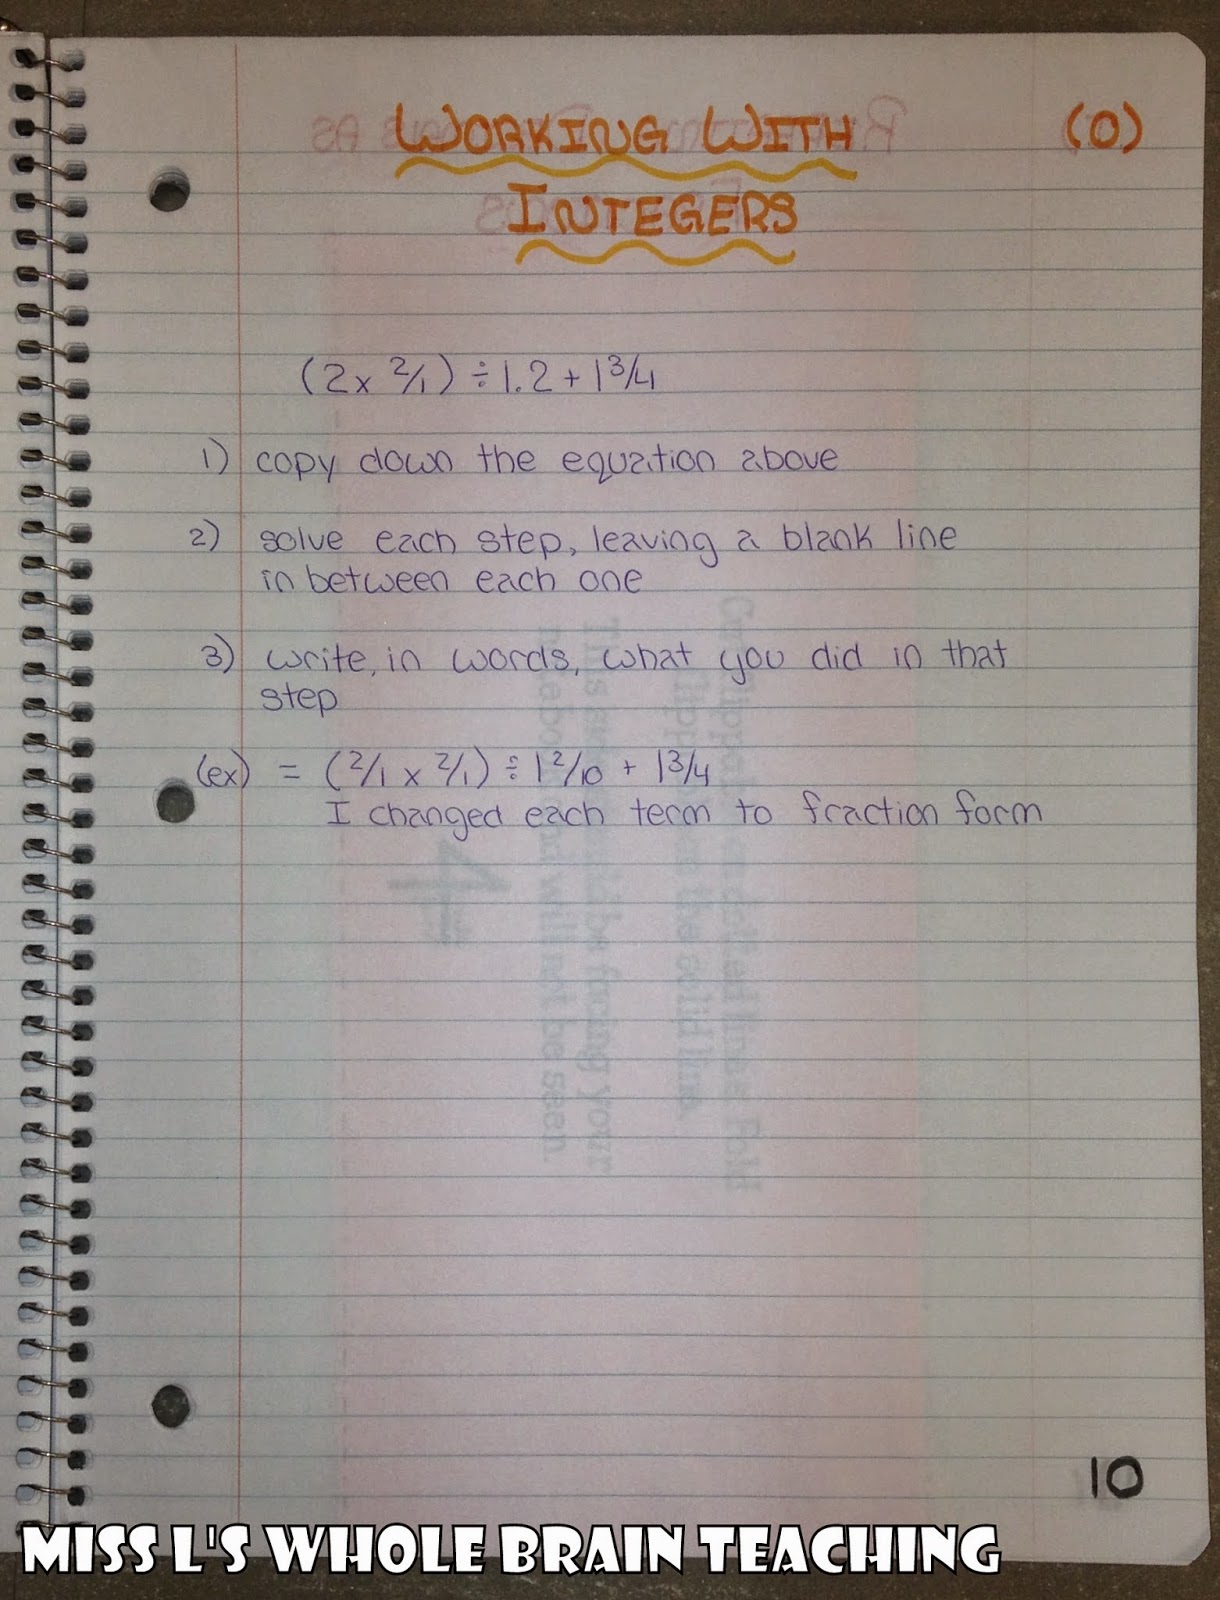 WORKING WITH (O)
INTEGERS
(2 x 2/1) ÷ 1.2 + 1 3/4
1) copy down the equation above
2) solve each step, leaving a blank line
in between each one
3) write, in words, what you did in that
step
(ex) = (2/1 x 2/1) ÷ 1 2/10 + 1 3/4
I changed each term to fraction form
10
MISS L'S WHOLE BRAIN TEACHING